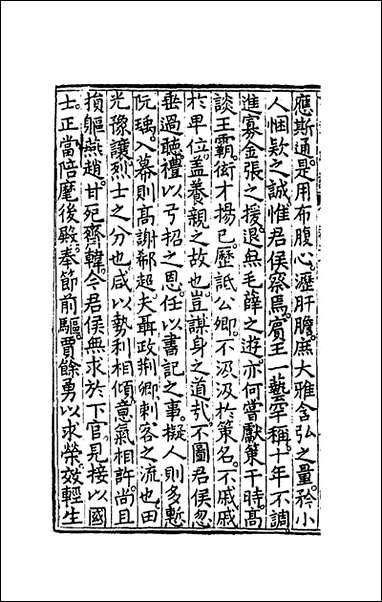 應斯通是用布腹心瀝肝膽庶大雅含弘之量矜小
人悃欵之誠惟君侯察焉賓王一藝罕稱十年不調
進寡金張之援退無毛薛之遊亦何嘗獻策干時高
談王霸衒才揚己歷詆公卿不汲汲扵策名不戚戚
扵卑位盖養親之故也豈謀身之道㢤不圖君侯忽
垂過聽禮以弓招之恩任以書記之事擬人則多慙
阮瑀入幕則高謝郗超夫聶政荆卿刺客之流也田
光豫讓烈士之分也咸以勢利相傾意氣相許尚且
損軀燕趙甘死齊韓今君侯無求於下官見接以國
士正當陪麾後殿奉節前驅賈餘勇以求榮效輕生